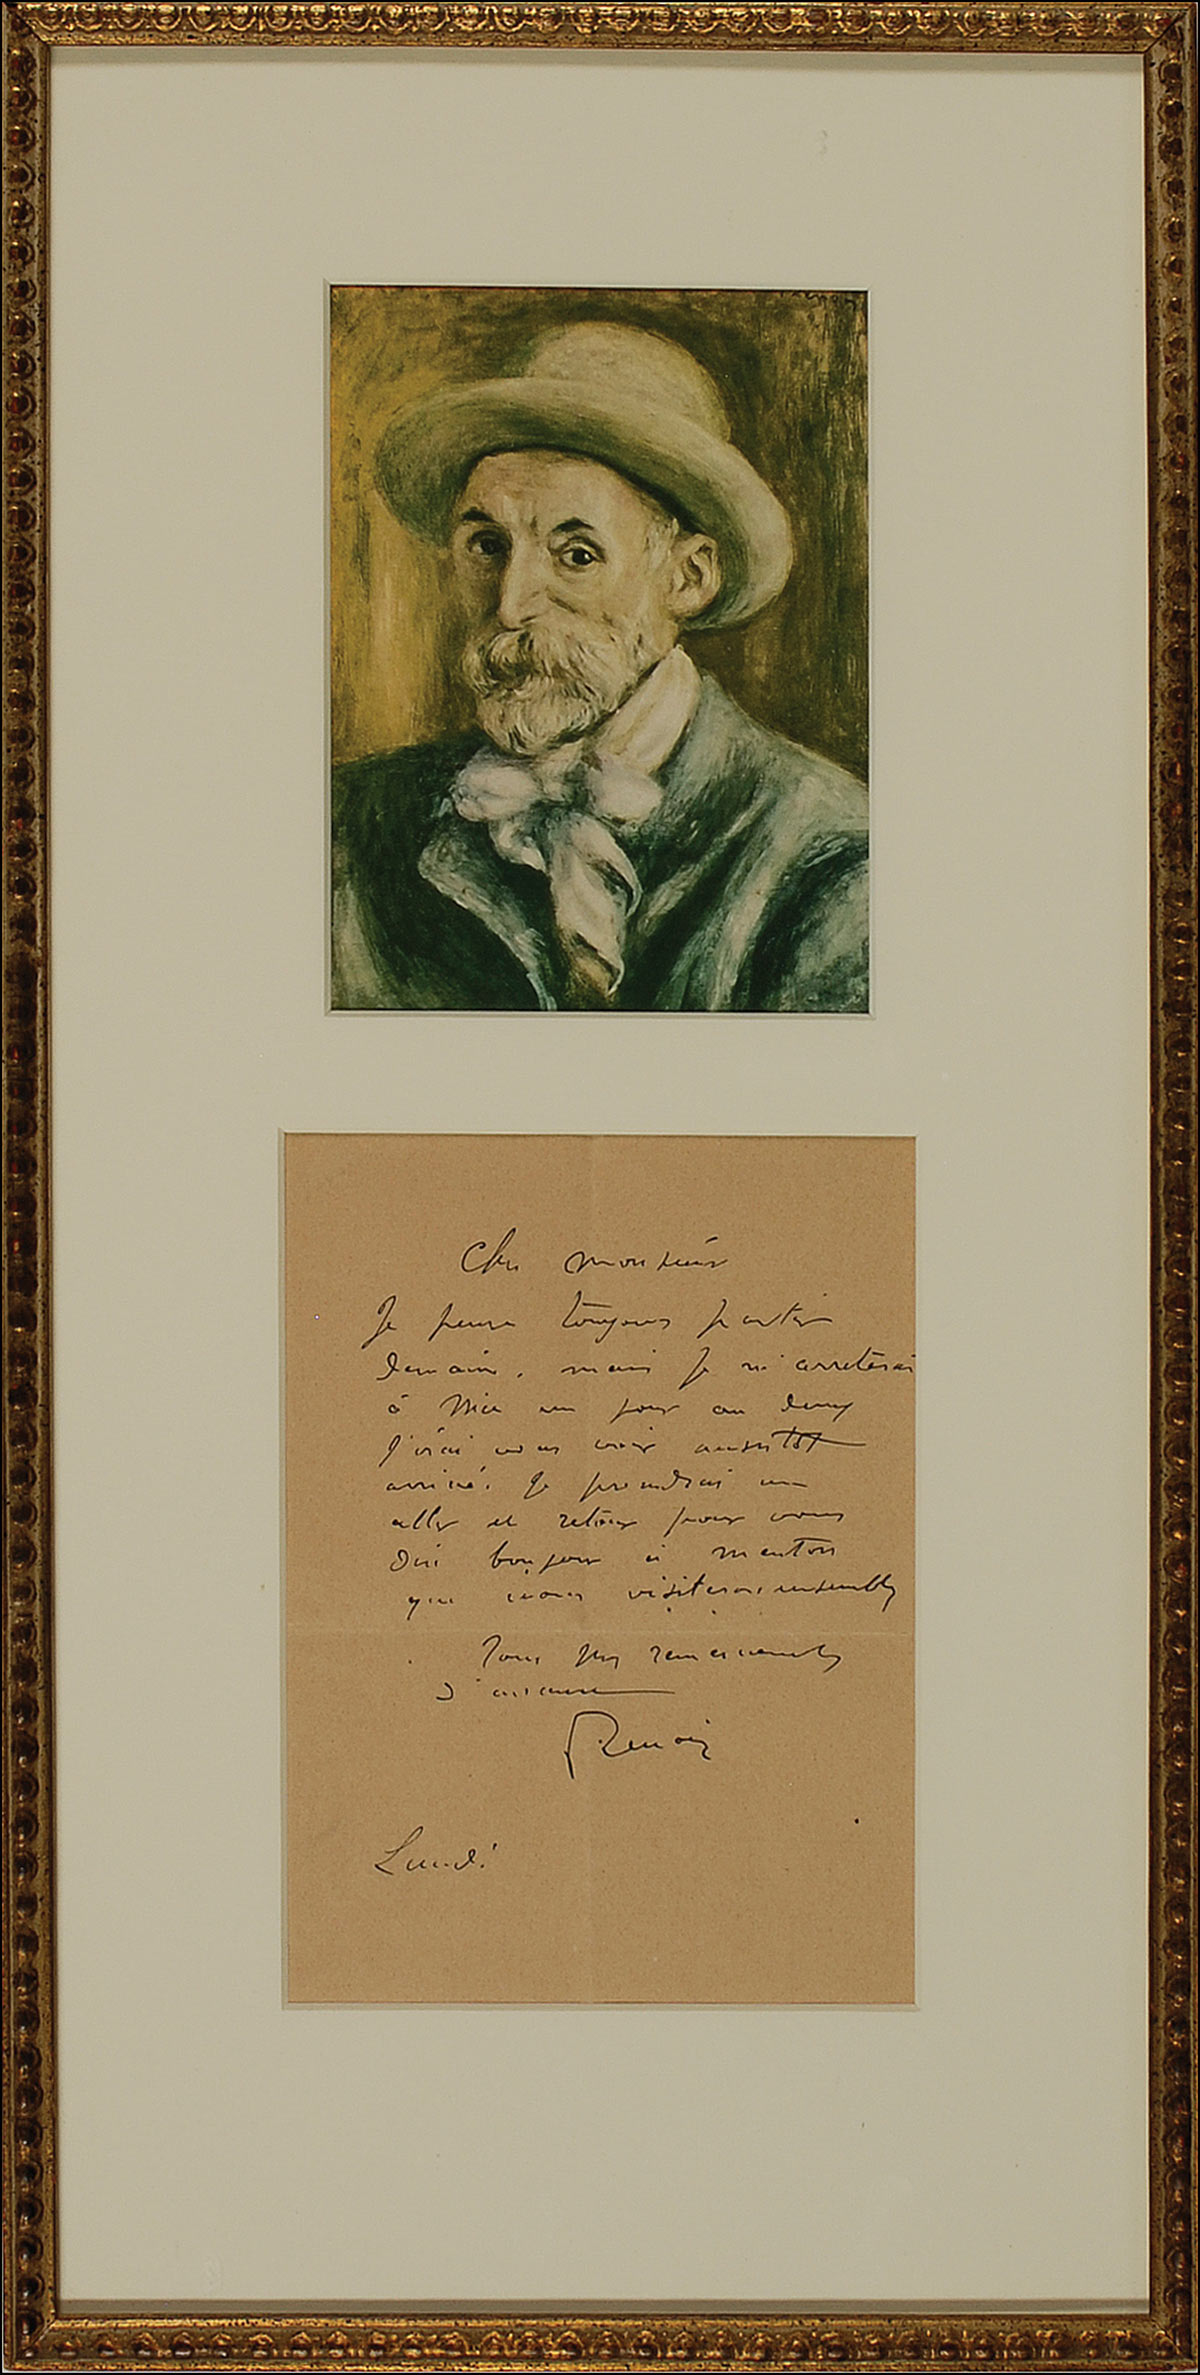 Renoir
Cher monsieur
Je pense toujours partir
demain, mais je m'arreterai
à Nice un jour ou deux
J'irai vous voir aussitot
arrivé. Je prendrai un
aller et retour pour vous
dire bonjour à Menton
que nous visiterons ensemble
Tous mes remerciements
d'avance
Renoir
Lundi